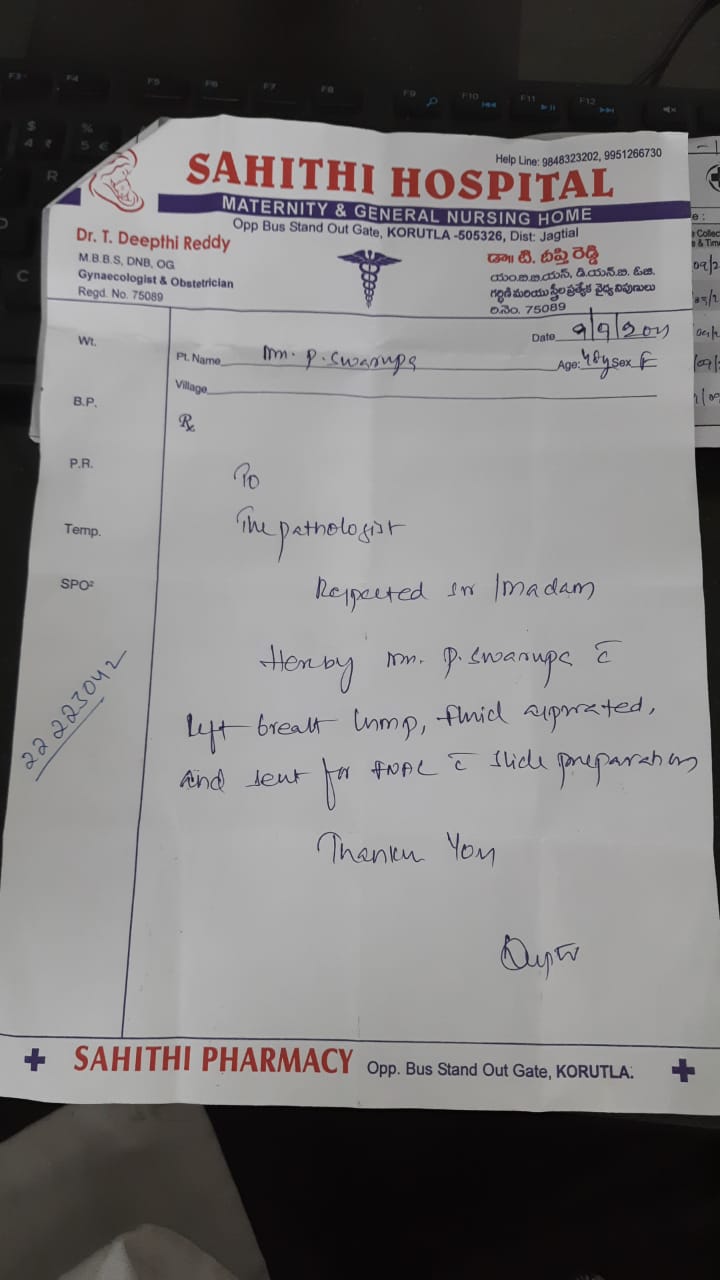 Help Line: 9848323202, 9951266730
SAHITHI HOSPITAL
MATERNITY & GENERAL NURSING HOME
Opp Bus Stand Out Gate, KORUTLA -505326, Dist: Jagtial
Dr. T. Deepthi Reddy
M.B.B.S, DNB, OG
Gynaecologist & Obstetrician
Regd. No. 75089
డా॥ టి. దీప్తి రెడ్డి
యం.బి.బి.యస్, డి.యన్.బి. ఓ.జి.
గర్భిణి మరియు స్త్రీల ప్రత్యేక వైద్య నిపుణులు
రి.నెం. 75089
Date 9/9/2022
Pt. Name Mrs. P. Swarupa Age: 48y Sex F
Village
Rx
Wt.
B.P.
P.R.
Temp.
SPO²
22223042
To
The pathologist
Respected sir /madam
Herby Mrs. P. Swarupa c̅
left breast lump, fluid aspirated,
and sent for FNAC c̅ slide preparation
Thanku You
SAHITHI PHARMACY Opp. Bus Stand Out Gate, KORUTLA.